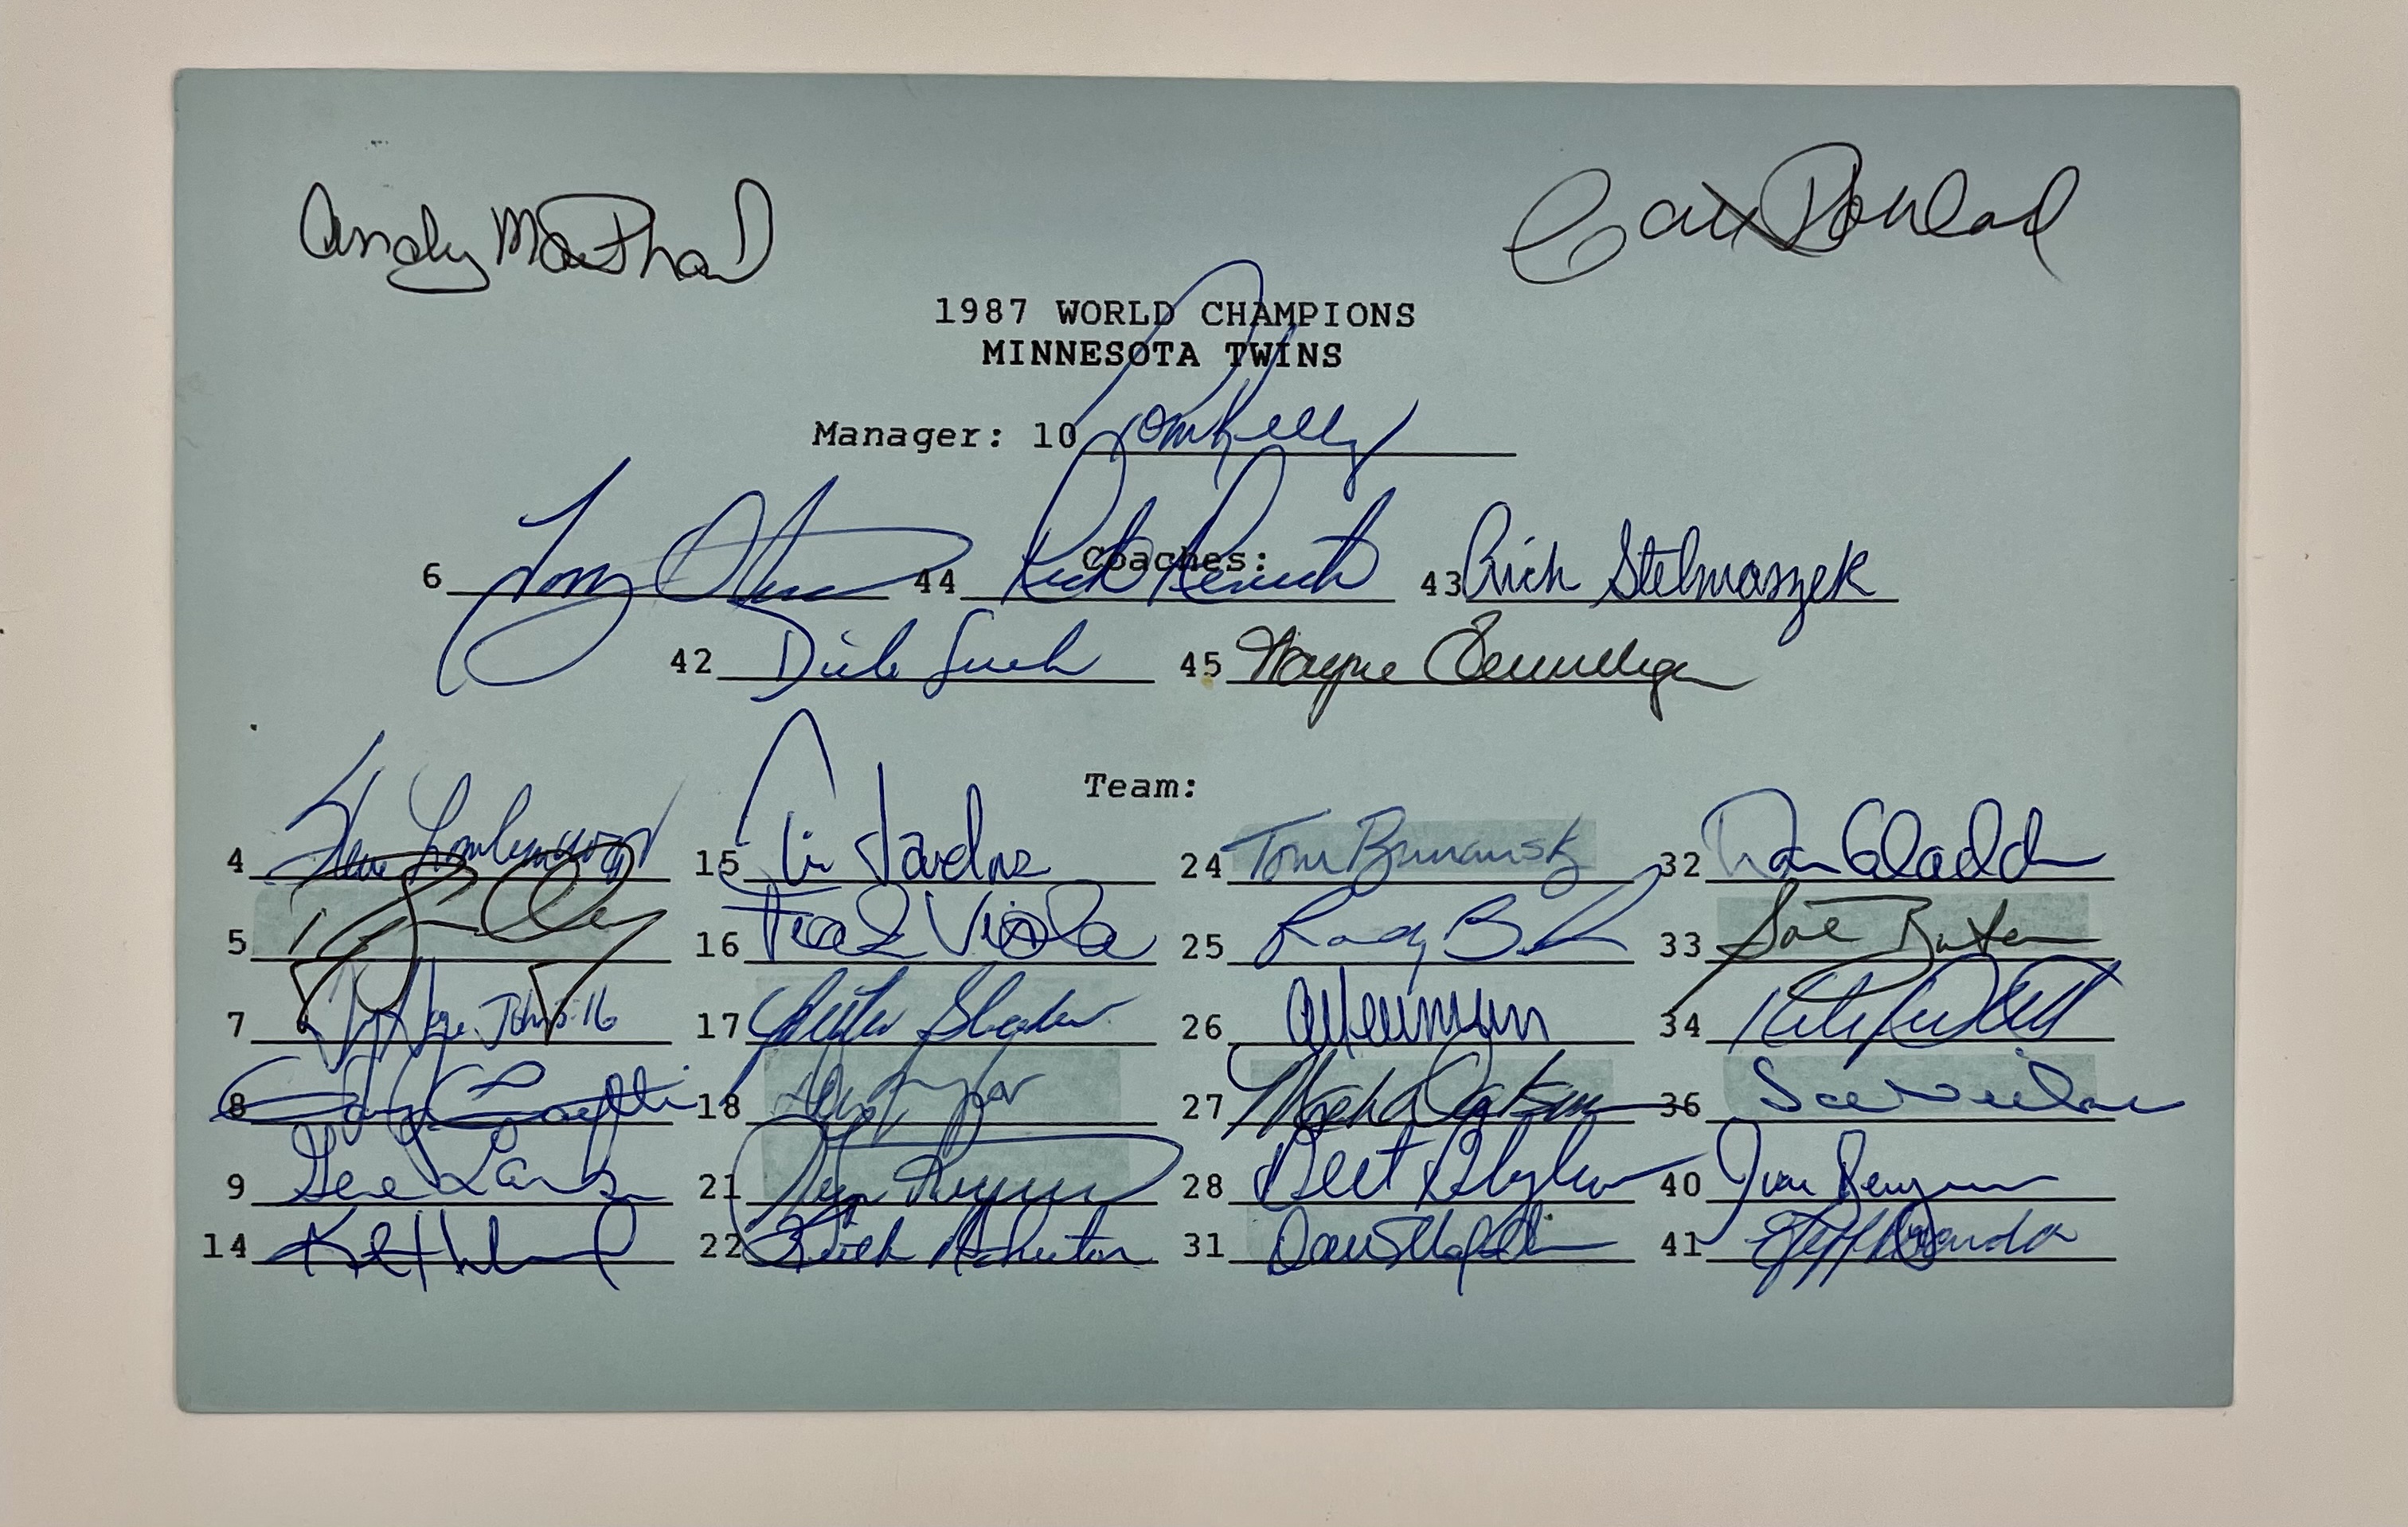 Andy MacPhail Carl Pohlad
1987 WORLD CHAMPIONS
MINNESOTA TWINS
Manager: 10 Tom Kelly
Coaches:
6 Tony Oliva 44 Rick Renick 43 Rich Stelmaszek
42 Dick Such 45 Wayne Terwilliger
Team:
4 Steve Lombardozzi 15 Tim Laudner 24 Tom Brunansky 32 Dan Gladden
5 16 Frank Viola 25 Randy Bush 33 Sal Butera
7 17 26 Al Newman 34 Kirby Puckett
8 Gary Gaetti 18 27 36 Joe Niekro
9 Gene Larkin 21 28 Bert Blyleven 40 Juan Berenguer
14 Kent Hrbek 22 31 41 Jeff Reardon